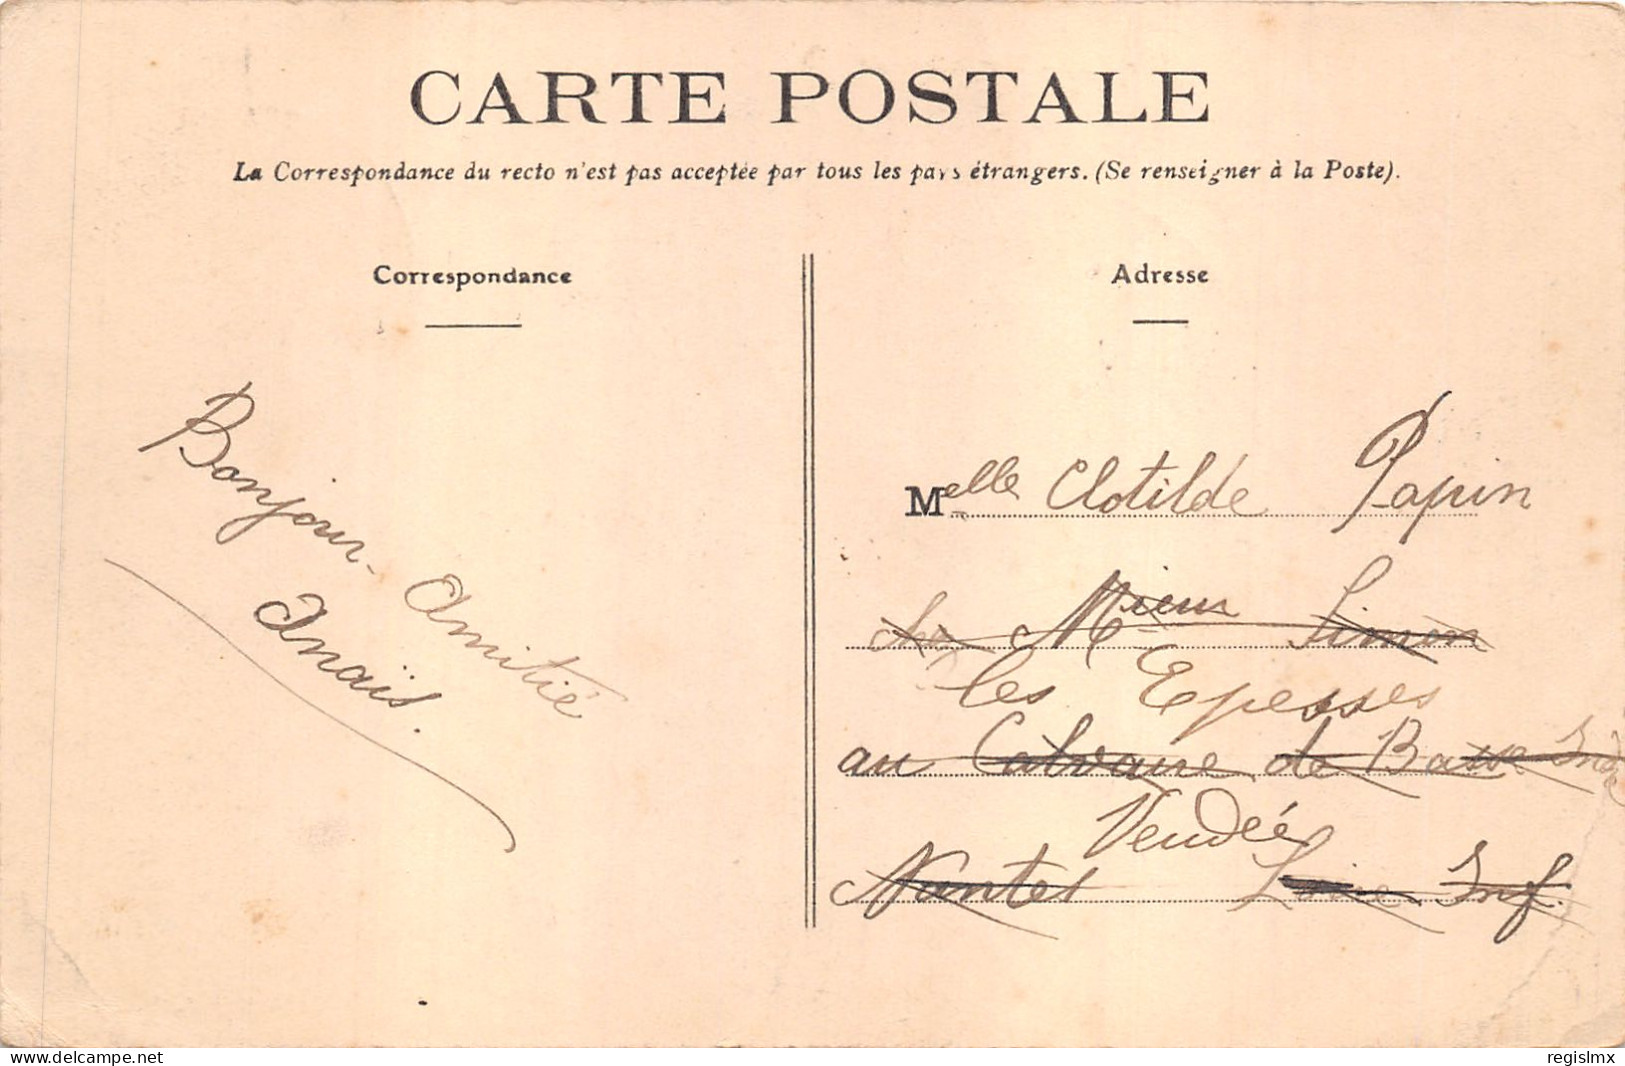 CARTE POSTALE
La Correspondance du recto n'est pas acceptée par tous les pays étrangers. (Se renseigner à la Poste).
Correspondance
Bonjour - Amitié
Anaïs.
Adresse
Melle Clotilde Papin
chez Mr Simon
Les Epesses
au Calvaire de Basse Indre
Vendée
Nantes Loire Inf.
www.delcampe.net
regislmx